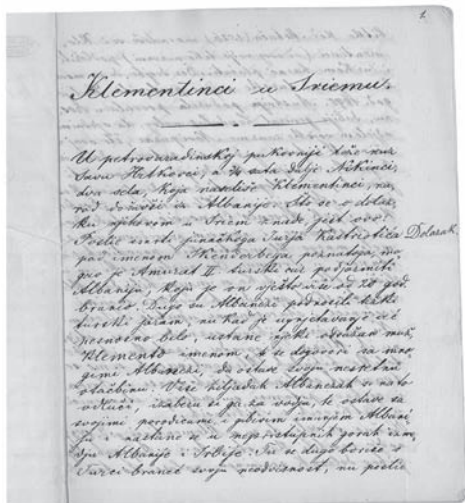 1.
Klementinci u Sriemu.
U petrovaradinskoj pukovnije leže uz
Savu Hetkovci, a ¾ sata dalje Nikinci,
dva sela, koja naseliše Klementinci, na
rod došavši iz Albanije. Što se o dolaz
ku njihovom u Sriem znade, jest ovo:
Poslie smrti junačkoga Jurja Kastriotića Dolazak.
pod imenom Skenderbega poznatoga, mo
gao je Amurat II turski car podjarmiti
Albaniju, koju je on vješto više od 20 god.
branio. Dugo su Albanezi podnosili težki
turski jaram, nu kad je ugnjetavanje već
nesnosno bilo, ustane njeki odvažan muž,
Klemento imenom, te se dogovori sa mno
gimi Albanezi, da ostave svoju nesretnu
otačbinu. Više hiljadah Albanezah se na to
odluči, izaberu si ga za vodju, te ostave sa
svojimi porodicami i pokretnim imanjem Albani
ju i nastane se u nepristupnih gorah izme
dju Albanije i Srbije. Tu se dugo boriše s
Turci braneć svoju neodvisnost, nu poslie